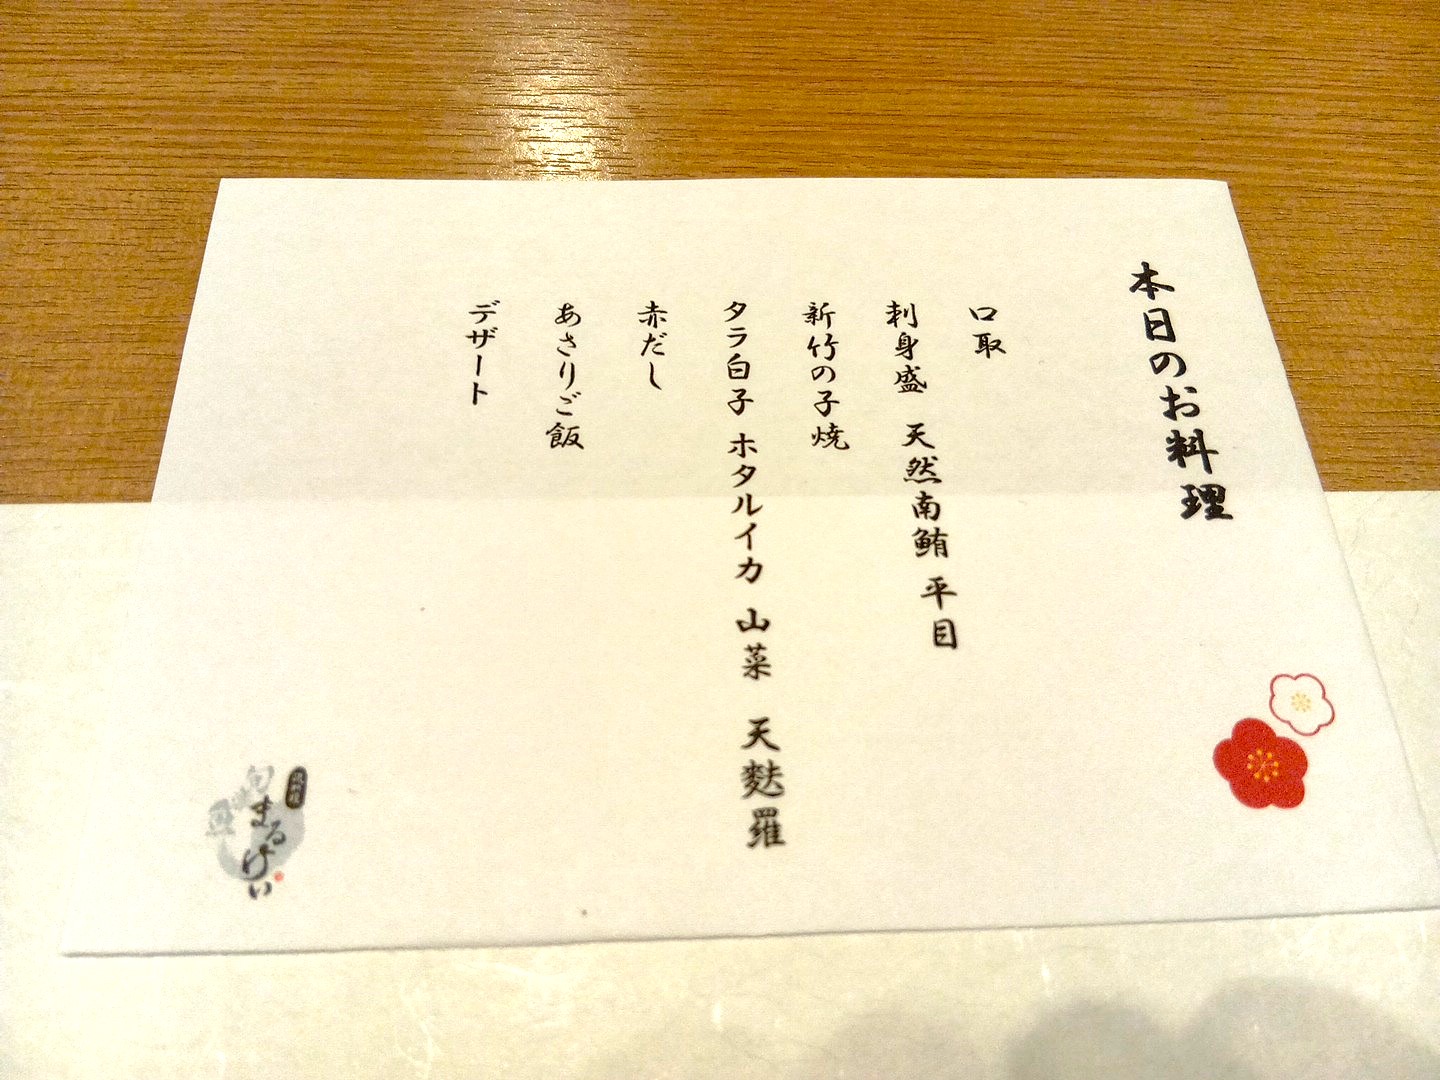 本日のお料理
口取
刺身盛 天然南鮪 平目
新竹の子焼
タラ白子 ホタルイカ 山菜 天麩羅
赤だし
あさりご飯
デザート
旬
まるけい